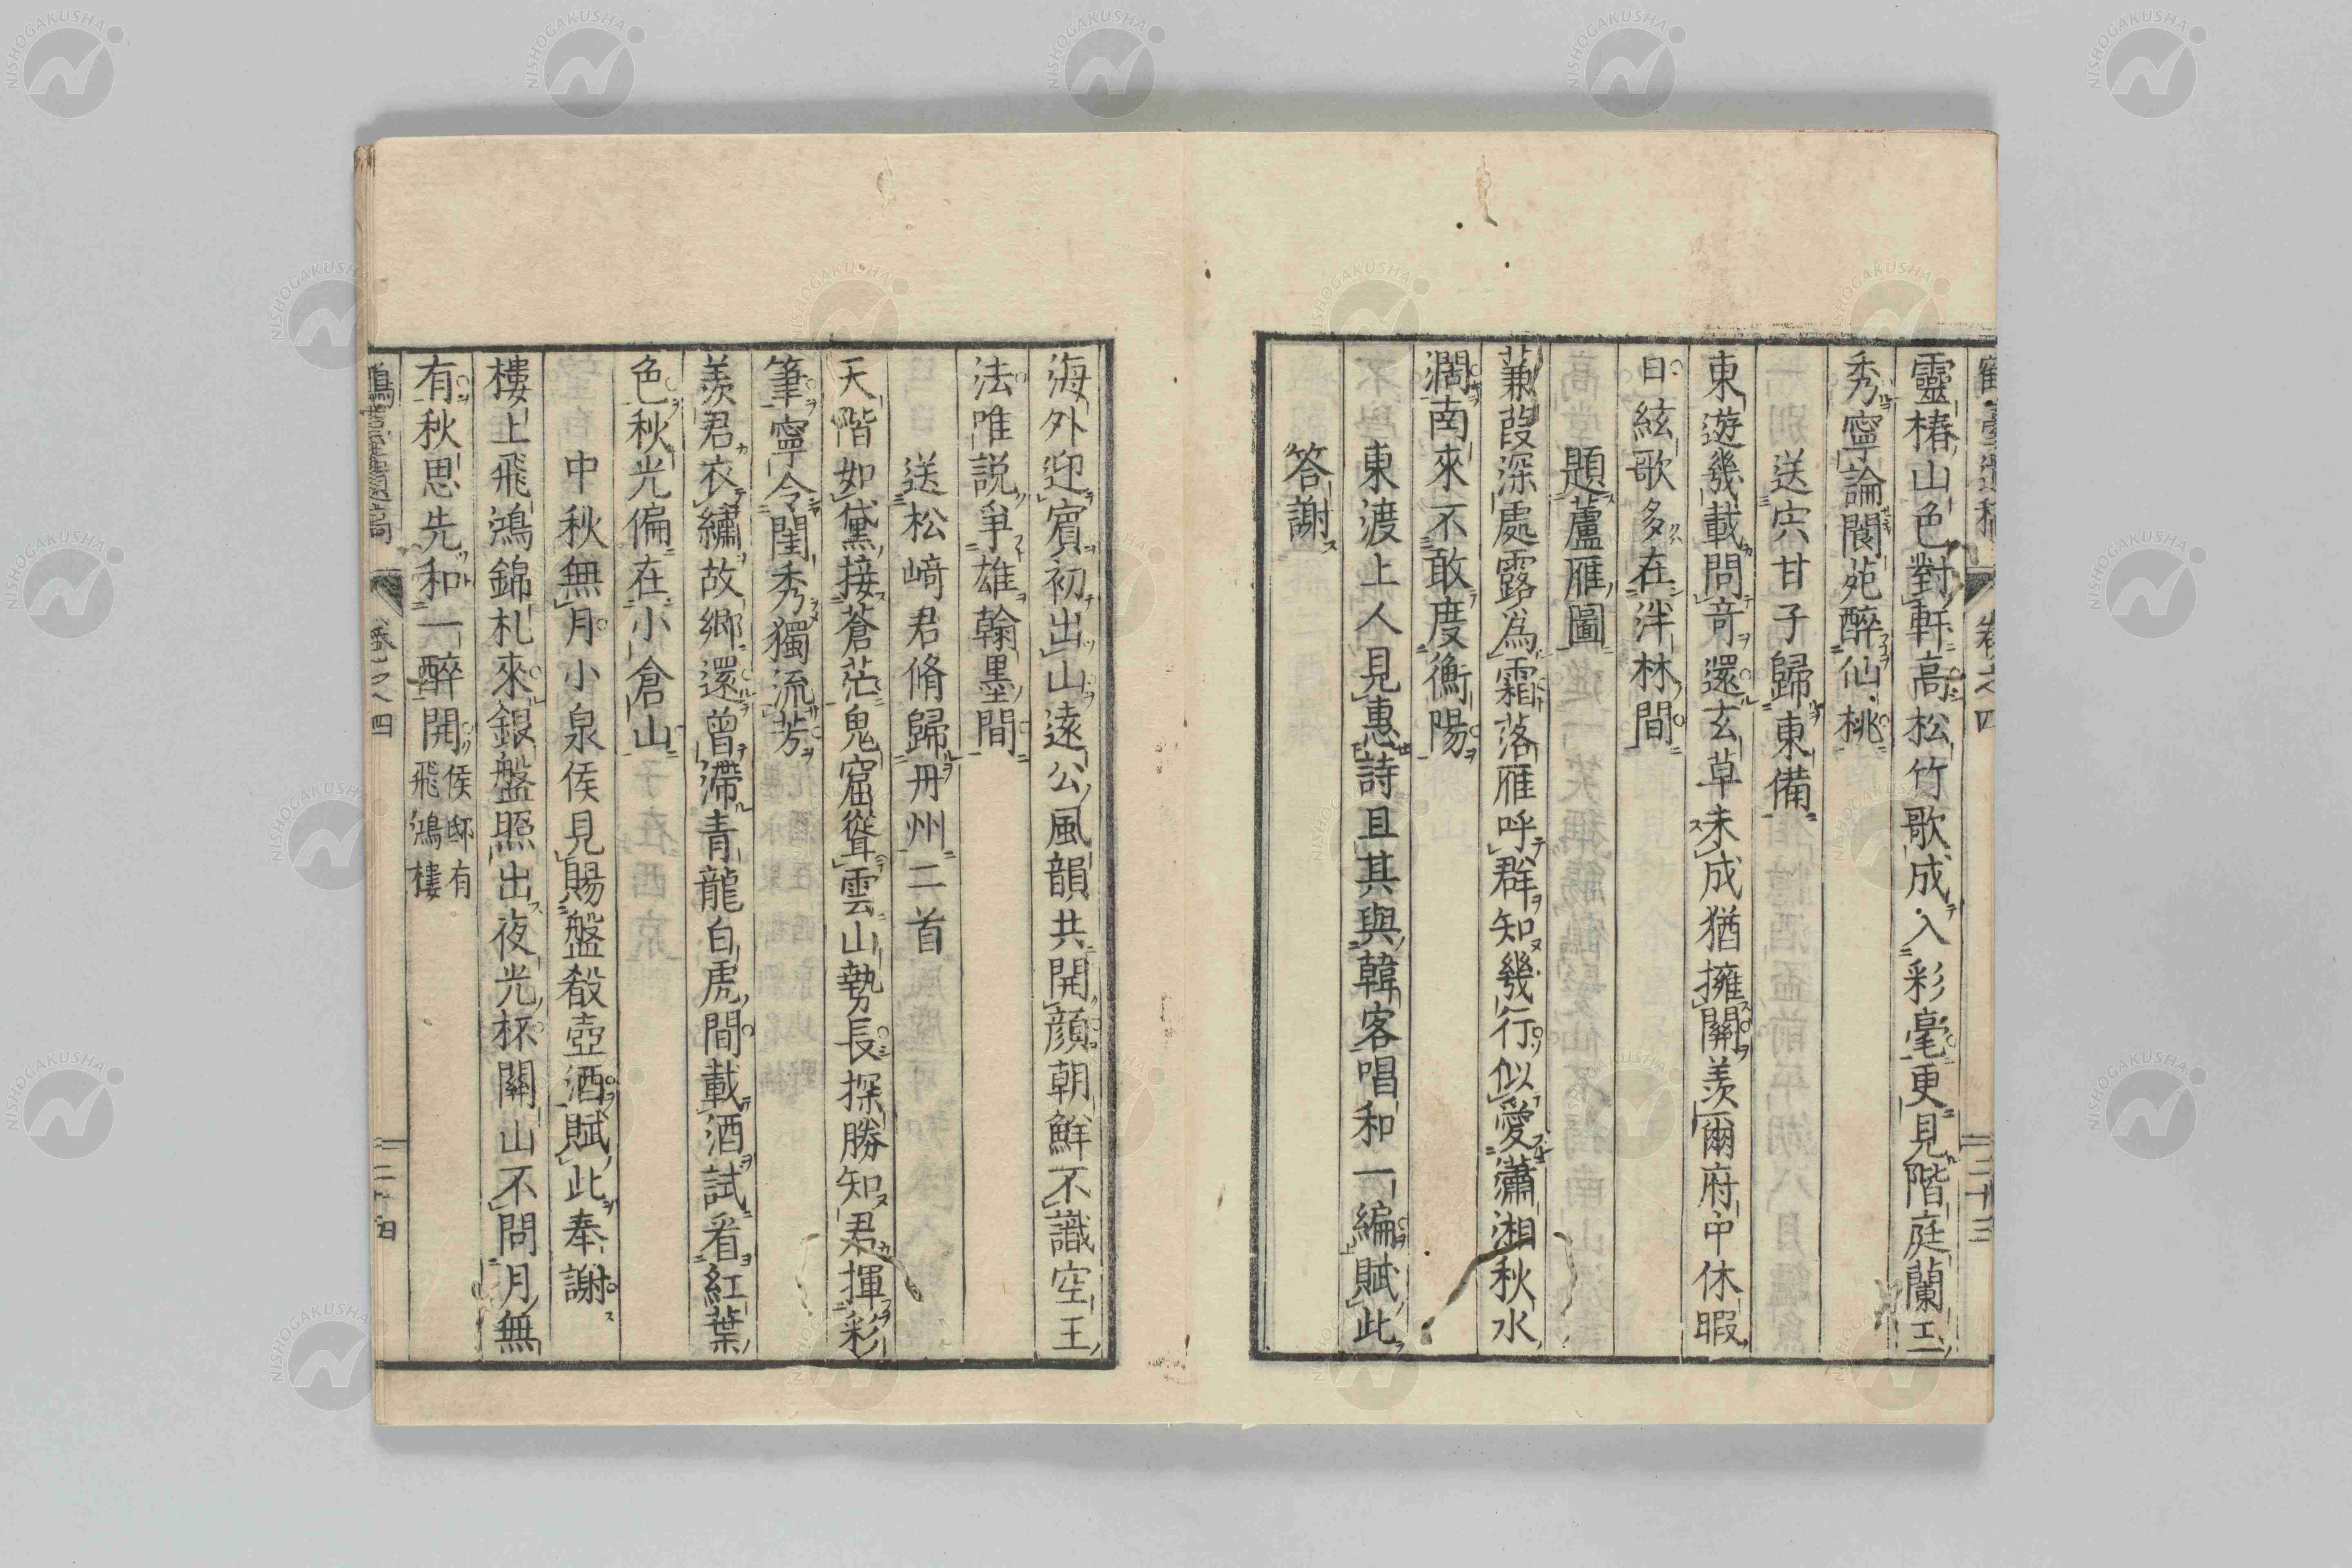 鶴臺遺稿 卷之四 二十三
靈椿山色對軒高松竹歌成入彩毫更見階庭蘭玉
秀寧論閬苑醉仙桃
送宍甘子歸東備
東遊幾載問奇還玄草未成猶擁關羨爾府中休暇
日絃歌多在泮林間
題蘆雁圖
蒹葭深處露爲霜落雁呼群知幾行似愛瀟湘秋水
濶南來不敢度衡陽
東渡上人見惠詩且其與韓客唱和一編賦此
答謝
海外迎賓初出山遠公風韻共開顔朝鮮不識空王
法唯説爭雄翰墨間
送松﨑君脩歸丹州二首
天階如黛接蒼茫鬼窟聳雲山勢長探勝知君揮彩
筆寧令閨秀獨流芳
羨君衣繡故郷還曾滯青龍白虎間載酒試看紅葉
色秋光偏在小倉山
中秋無月小泉侯見賜盤殽壺酒賦此奉謝
樓上飛鴻錦札來銀盤照出夜光杯關山不問月無
有秋思先和一醉開 侯邸有飛鴻樓
鶴臺遺稿 卷之四 二十四
NISHOGAKUSHA